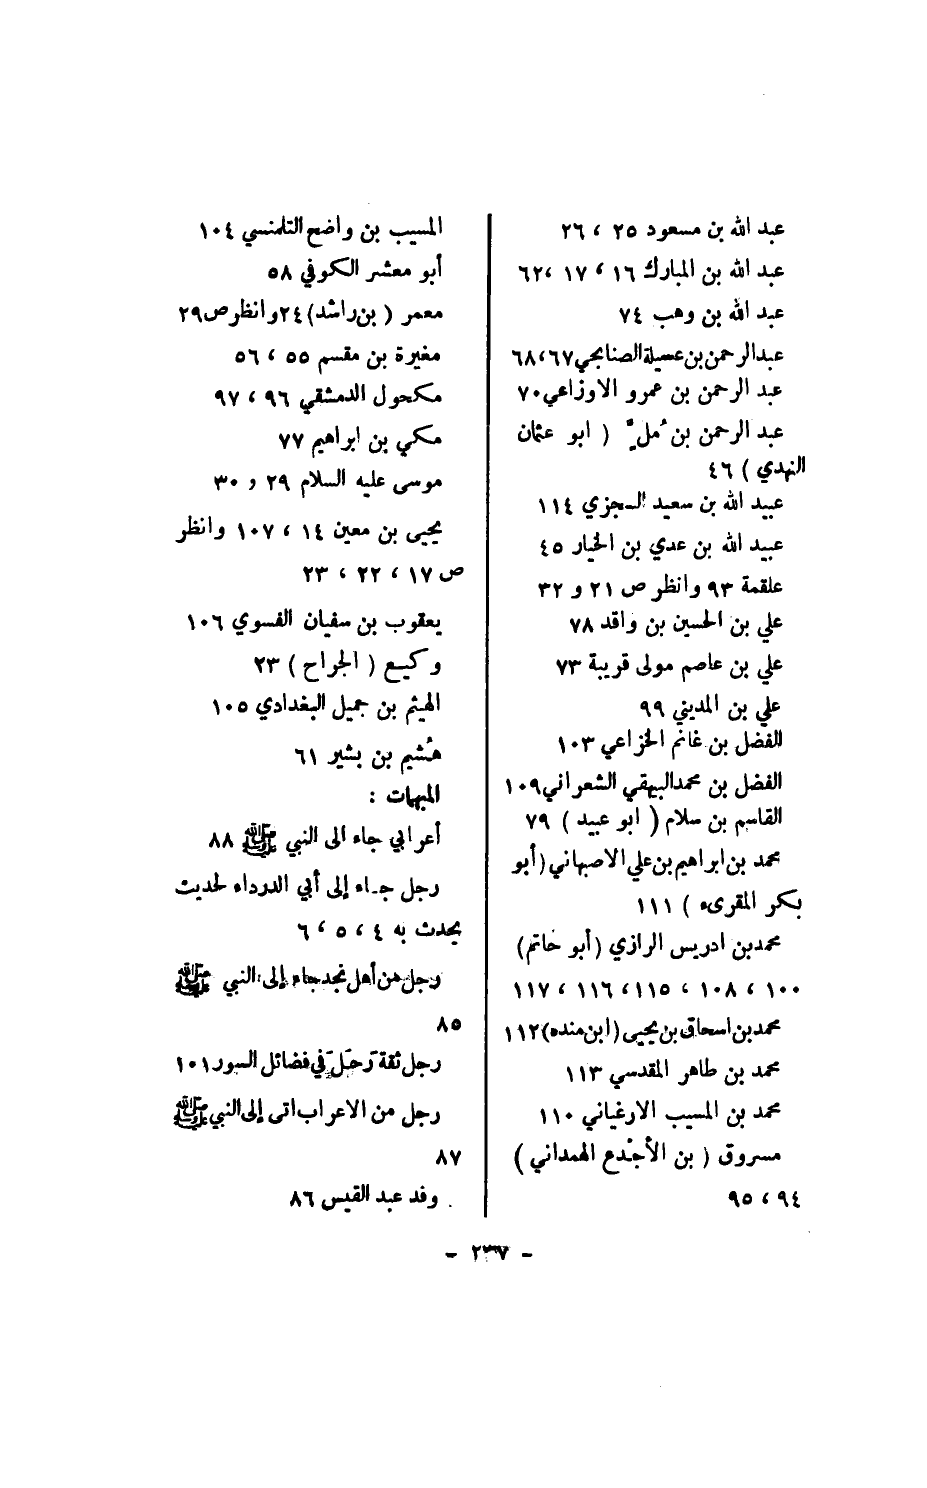 عبد الله بن مسعود ٢٥ ، ٢٦
عبد الله بن المبارك ١٦ ، ١٧ ،٦٢
عبد الله بن وهب ٧٤
عبدالرحمن بن عسيلة الصنابحي ٦٧،٦٨
عبد الرحمن بن عمرو الاوزاعي ٧٠
عبد الرحمن بن مُلّ ( ابو عثمان
النهدي ) ٤٦
عبيد الله بن سعيد السجزي ١١٤
عبيد الله بن عدي بن الخيار ٤٥
علقمة ٩٣ وانظر ص ٢١ و ٣٢
علي بن الحسين بن واقد ٧٨
علي بن عاصم مولى قريبة ٧٣
علي بن المديني ٩٩
الفضل بن غانم الخزاعي ١٠٣
الفضل بن محمد البيهقي الشعراني ١٠٩
القاسم بن سلام ( ابو عبيد ) ٧٩
محمد بن ابراهيم بن علي الاصبهاني (أبو
بكر المقرىء ) ١١١
محمد بن ادريس الرازي (أبو حاتم)
١٠٠ ، ١٠٨ ، ١١٥، ١١٦ ، ١١٧
محمد بن اسحاق بن يحيى (ابن منده) ١١٢
محمد بن طاهر المقدسي ١١٣
محمد بن المسيب الارغياني ١١٠
مسروق ( بن الأجدع الهمداني )
٩٤ ، ٩٥
المسيب بن واضح التلمنسي ١٠٤
أبو معشر الكوفي ٥٨
معمر ( بن راشد) ٢٤ وانظر ص ٢٩
مغيرة بن مقسم ٥٥ ، ٥٦
مكحول الدمشقي ٩٦ ، ٩٧
مكي بن ابراهيم ٧٧
موسى عليه السلام ٢٩ و ٣٠
يحيى بن معين ١٤ ، ١٠٧ وانظر
ص ١٧ ، ٢٢ ، ٢٣
يعقوب بن سفيان الفسوي ١٠٦
وكيع ( الجراح ) ٢٣
الهيثم بن جميل البغدادي ١٠٥
هُشيم بن بشير ٦١
المبهمات :
أعرابي جاء الى النبي ﷺ ٨٨
رجل جاء إلى أبي الدرداء لحديث
يحدث به ٤ ، ٥ ، ٦
رجل من أهل نجد جاء إلى النبي ﷺ
٨٥
رجل ثقة رَحَل في فضائل السور ١٠١
رجل من الاعراب اتى إلى النبي ﷺ
٨٧
وفد عبد القيس ٨٦
- ٢٣٧ -